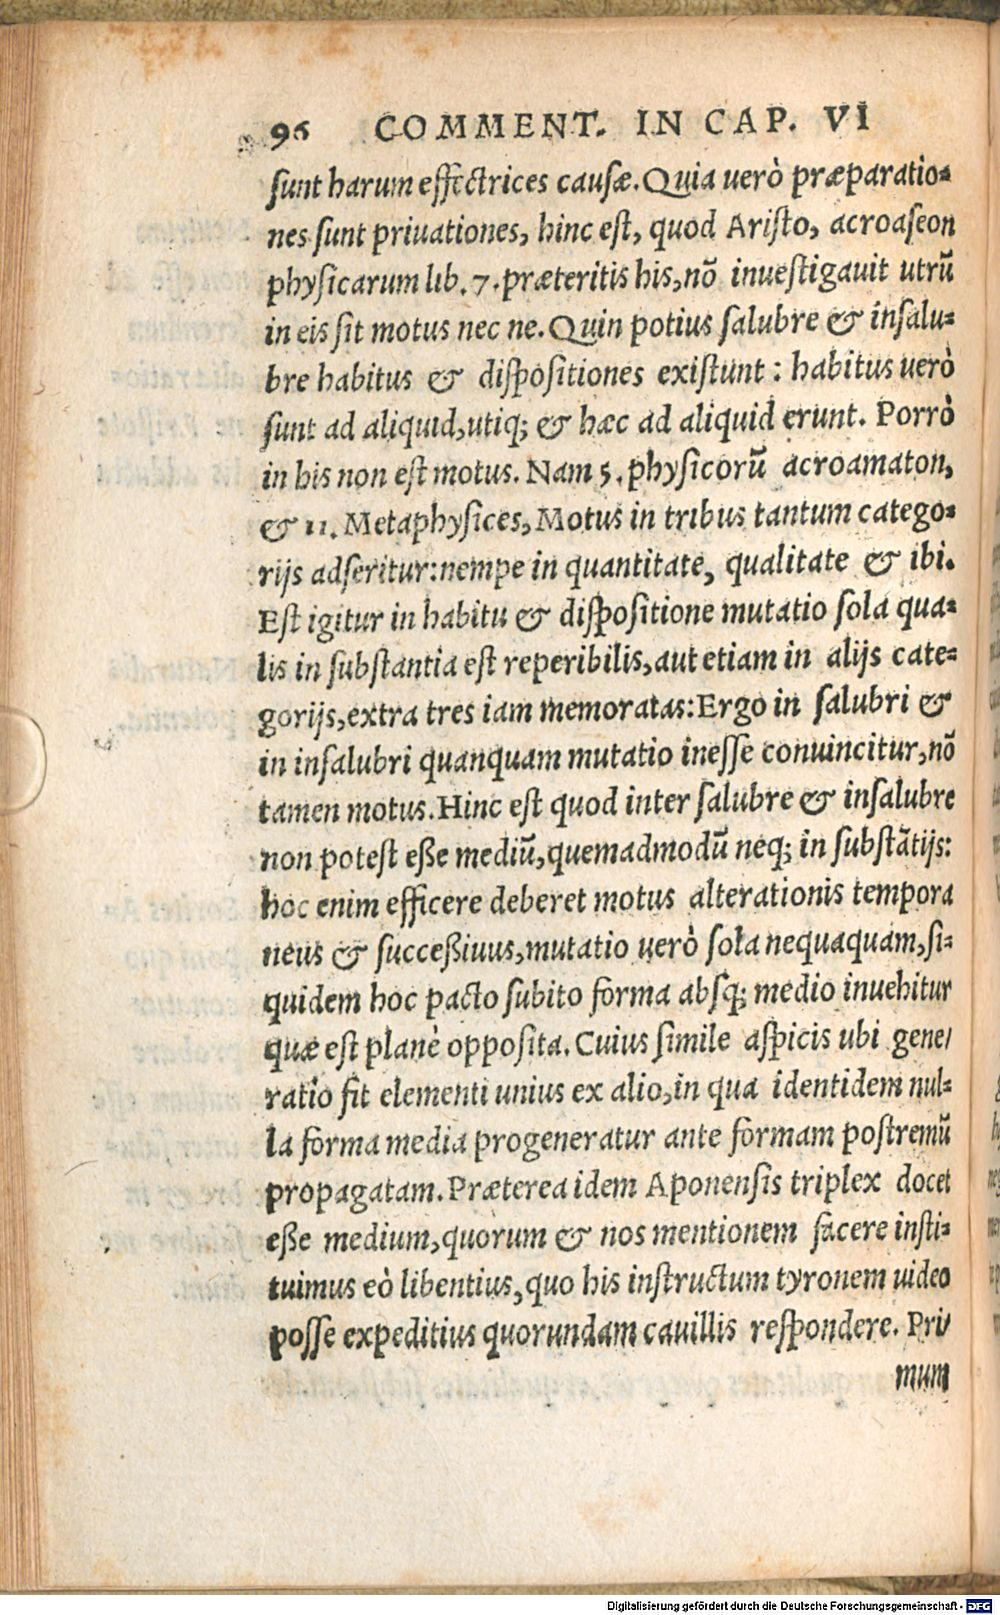 96 COMMENT. IN CAP. VI
sunt harum effectrices causæ. Quia uerò præparatio-
nes sunt priuationes, hinc est, quod Aristo, acroaseon
physicarum lib. 7. præteritis his, nõ inuestigauit utrũ
in eis sit motus nec ne. Quin potius salubre & insalu-
bre habitus & dispositiones existunt : habitus uerò
sunt ad aliquid, utiq; & hæc ad aliquid erunt. Porrò
in his non est motus. Nam 5. physicorũ acroamaton,
& 11. Metaphysices, Motus in tribus tantum catego-
rijs adseritur: nempe in quantitate, qualitate & ibi.
Est igitur in habitu & dispositione mutatio sola qua-
lis in substantia est reperibilis, aut etiam in alijs cate-
gorijs, extra tres iam memoratas: Ergo in salubri &
in insalubri quanquam mutatio inesse conuincitur, nõ
tamen motus. Hinc est quod inter salubre & insalubre
non potest eße mediũ, quemadmodũ neq; in substãtijs:
hoc enim efficere deberet motus alterationis tempora
neus & succeßiuus, mutatio uerò sola nequaquam, si-
quidem hoc pacto subito forma absq; medio inuehitur
quæ est planè opposita. Cuius simile aspicis ubi gene/
ratio fit elementi unius ex alio, in qua identidem nul-
la forma media progeneratur ante formam postremũ
propagatam. Præterea idem Aponensis triplex docet
eße medium, quorum & nos mentionem facere insti-
tuimus eò libentius, quo his instructum tyronem uideo
posse expeditius quorundam cauillis respondere. Pri/
mum
Digitalisierung gefördert durch die Deutsche Forschungsgemeinschaft - DFG